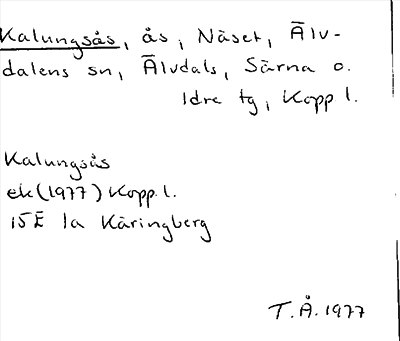 Kalungsås, ås, Näset, Älv-
dalens sn, Älvdals, Särna o.
Idre tg, Kopp l.
Kalungsås
ek (1977) Kopp. l.
15E 1a Käringberg
T.Å. 1977